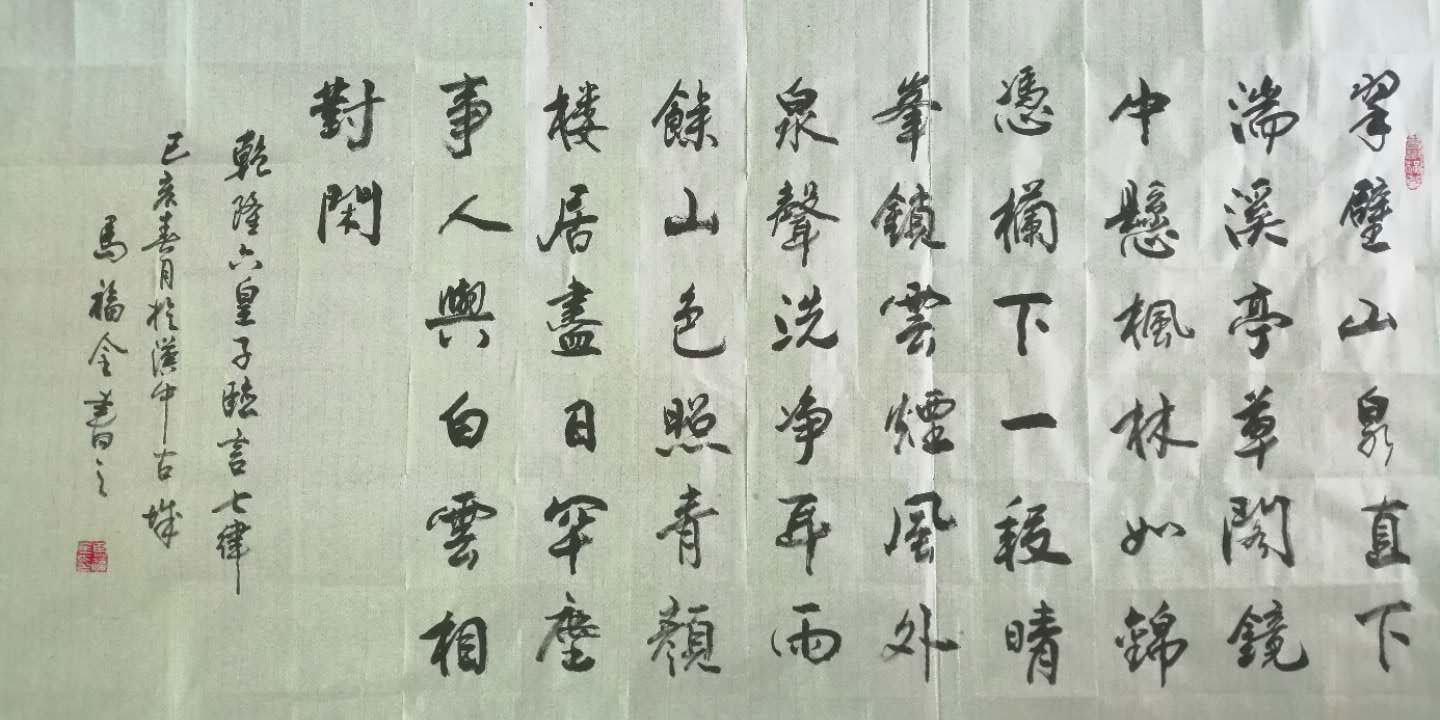 翠壁山泉直下
湍溪亭草閣鏡
中懸楓林如錦
憑欄下一段晴
峯鎖雲煙風外
泉聲洗净耳雨
餘山色照青顏
楼居盡日罕塵
事人與白雲相
對閑
乾隆六皇子瞻言七律
己亥春月於漢中古城
馬福全書之